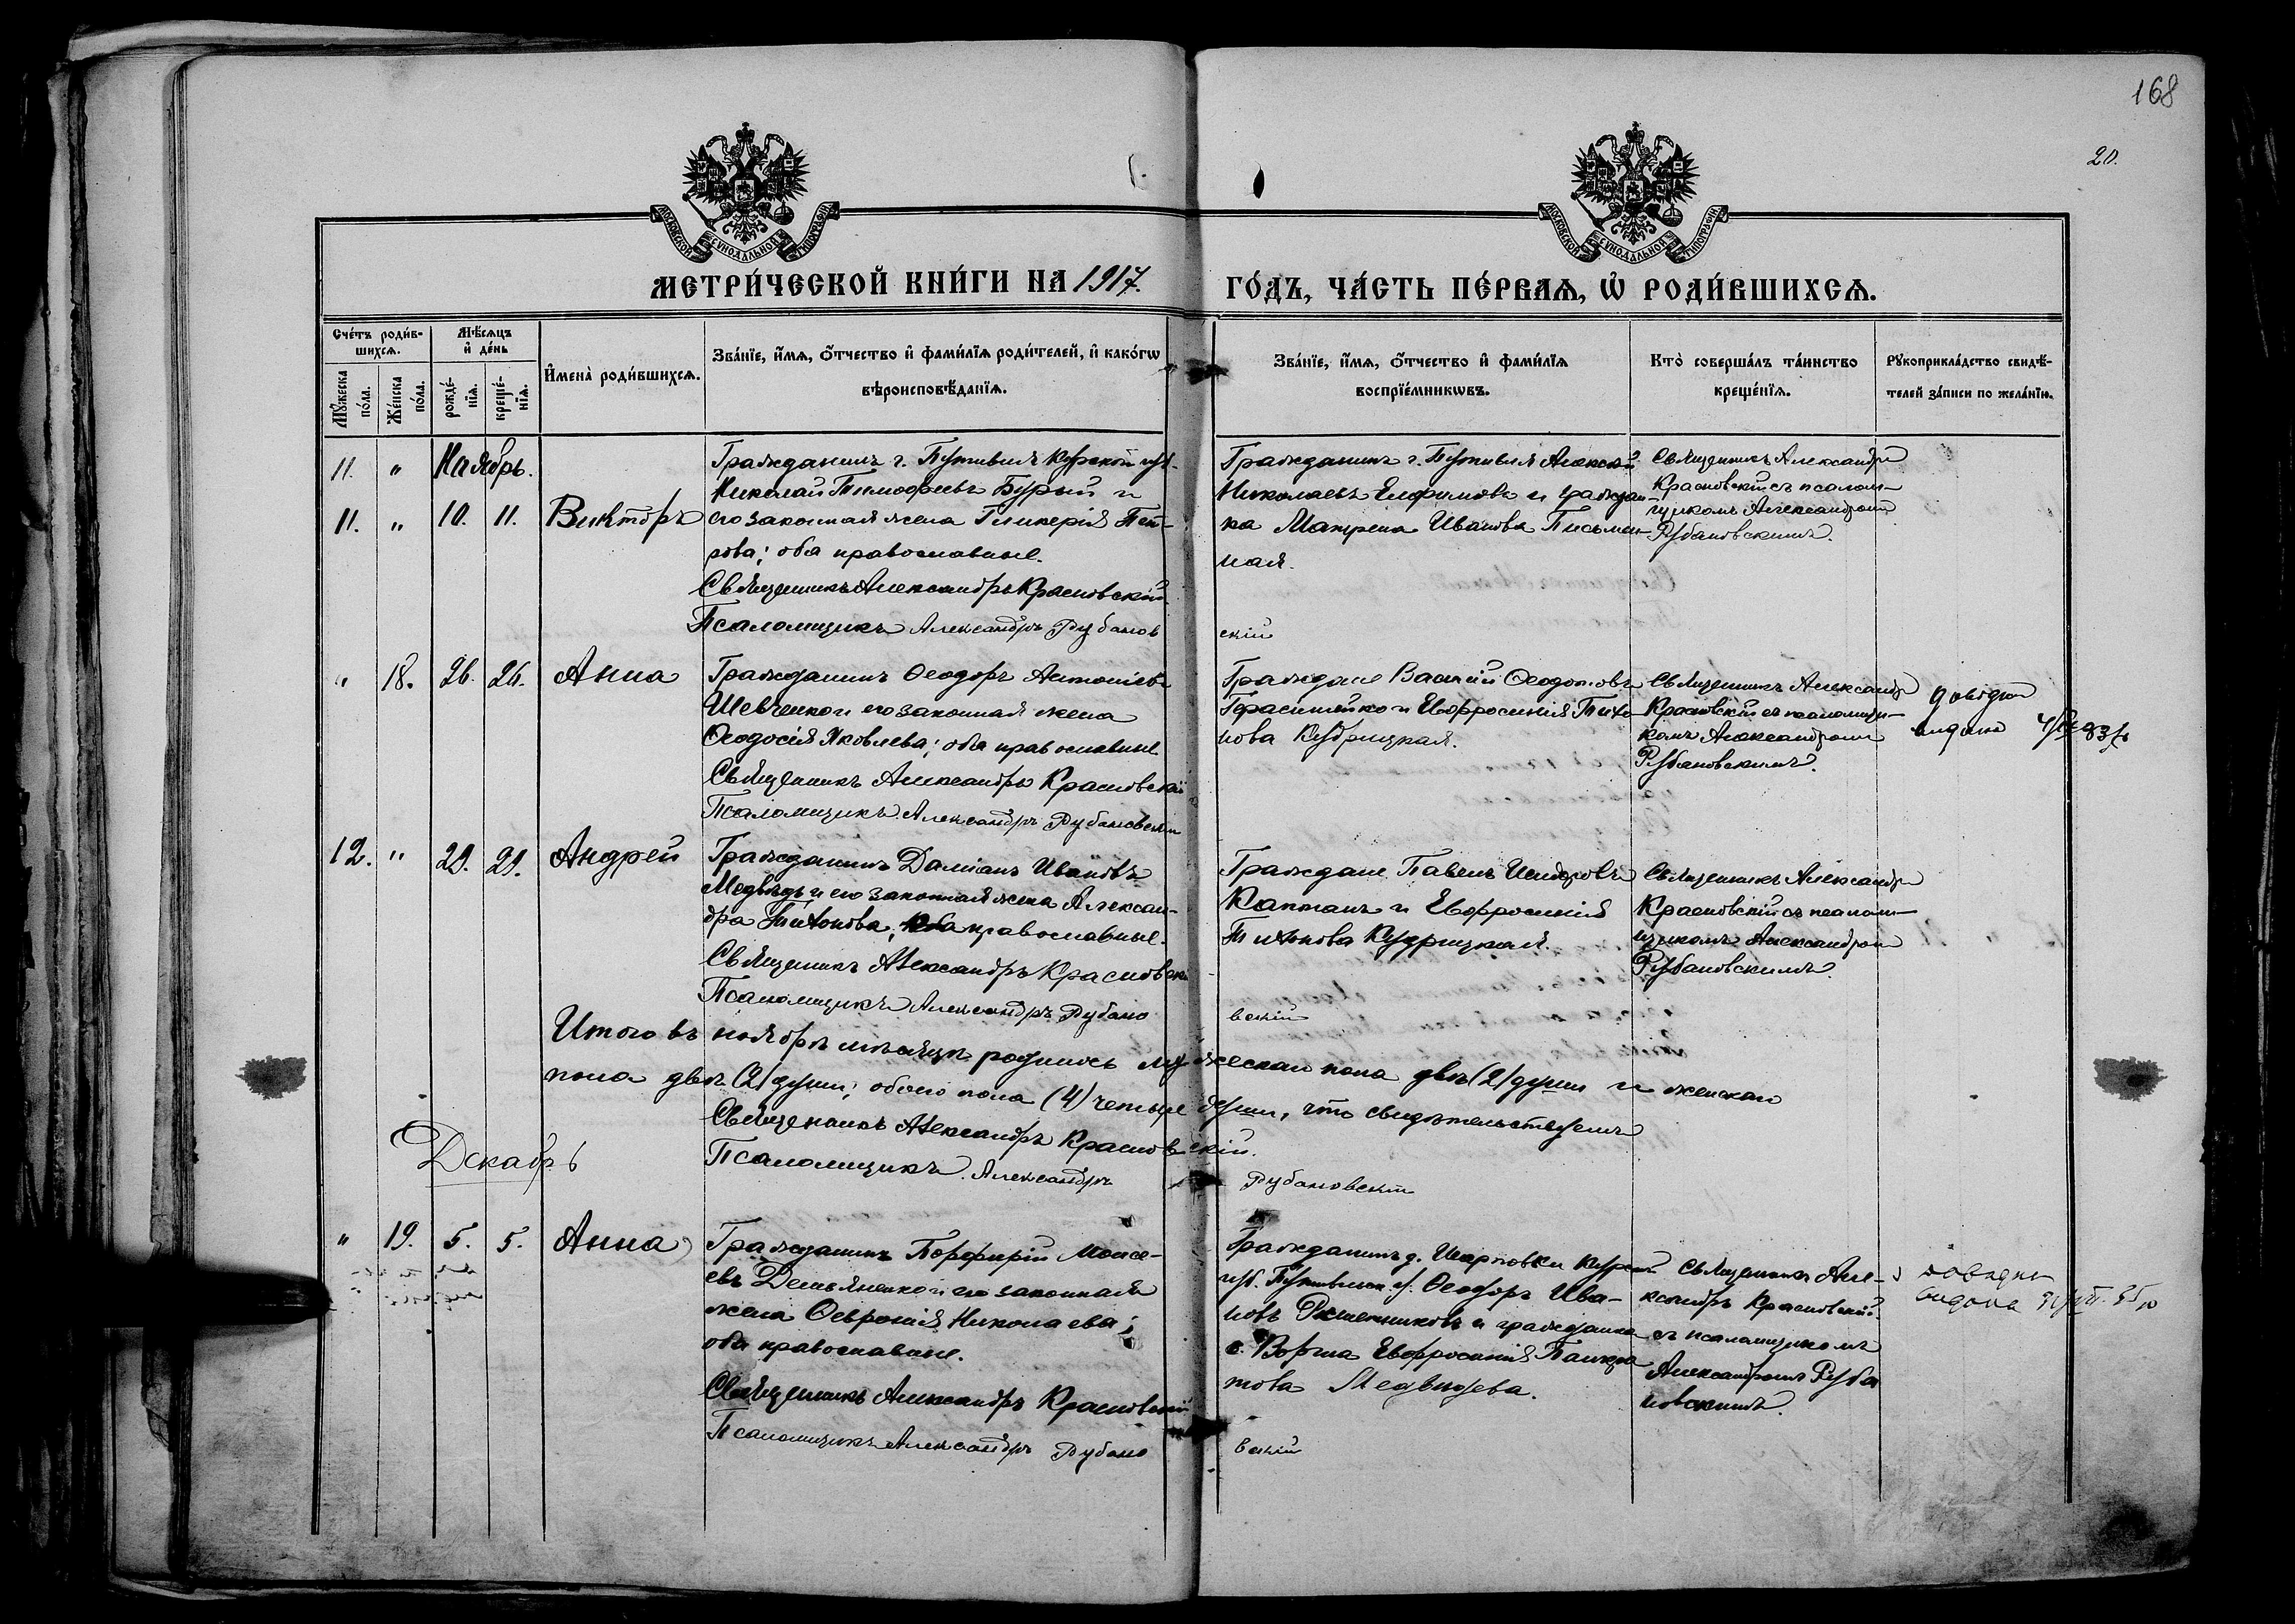 168
20.
МОСКОВСКОЙ СУНОДАЛЬНОЙ ТИПОГРАФІИ
МОСКОВСКОЙ СУНОДАЛЬНОЙ ТИПОГРАФІИ
МЕТРИ́ЧЕСКОЙ КНИ́ГИ НА 1917.
ГО́ДЪ, ЧА́СТЬ ПЕ́РВАѦ, Ѡ҆ РОДИ́ВШИХСѦ.
Сче́тъ роди́в-
шихсѧ.
Мꙋ́жеска
по́ла.
Же́нска
по́ла.
Мѣ́сѧцъ
и҆ де́нь
рожде́-
нїѧ.
креще́-
нїѧ.
И҆мена̀ роди́вшихсѧ.
Зва́нїе, и҆́мѧ, ѻ҆́тчество и҆ фами́лїѧ роди́телей, и҆ како́гѡ
вѣроисповѣ́данїѧ.
Зва́нїе, и҆́мѧ, ѻ҆́тчество и҆ фами́лїѧ
воспрїе́мникѡвъ.
Кто̀ соверша́лъ та́инство
креще́нїѧ.
Рꙋкоприкла́дство свидѣ́-
телей за́писи по жела́нїю.
11. " Ноябрь.
11. " 10. 11. Викторъ
Гражданинъ г. Путивля Курской губ.
Николай Тимофеевъ Бурый и
его законная жена Гликерія Пет-
рова; оба православные.
Священникъ Александръ Красновскій
Псаломщикъ Александръ Рубанов
скій
Гражданинъ г. Путивля Алексѣй
Николаевъ Ефимовъ и граждан-
ка Матрена Иванова Письмен-
ная.
Священникъ Александръ
Красновскій съ псалом-
щикомъ Александромъ
Рубановскимъ.
" 18. 26. 26. Анна
Гражданинъ Ѳеодоръ Антоніевъ
Шевченко и его законная жена
Ѳеодосія Яковлева; оба православные
Священникъ Александръ Красновскій
Псаломщикъ Александръ Рубановскій
Граждане Василій
Герасименко и Евфросинія Тихо-
нова Кудрицкая.
Священникъ Александръ
Красновскій съ псаломщи-
комъ Александромъ
Рубановскимъ.
довідку
видано
12. " 29. 29. Андрей
Гражданинъ Даміанъ Ивановъ
Медвѣдь и его законная жена Алексан-
дра Тихонова; оба православные.
Священникъ Александръ Красновскій
Псаломщикъ Александръ Рубано
вскій
Граждане Павелъ Исидоровъ
Каптанъ и Евфросинія
Тихонова Кудрицкая.
Священникъ Александръ
Красновскій съ псалом-
щикомъ Александромъ
Рубановскимъ.
Итого въ ноябрѣ мѣсяцѣ родилось мужескаго пола двѣ (2) души и женскаго
пола двѣ (2) души; обоего пола (4) четыре души, что свидѣтельствуемъ
Священникъ Александръ Красновскій.
Псаломщикъ Александръ Рубановскій
Декабрь
" 19. 5. 5. Анна
Гражданинъ Порфирій Моисе-
евъ Демьяненко и его законная
жена Ѳевронія Николаева;
оба православные.
Священникъ Александръ Красновскій
Псаломщикъ Александръ Рубано
вскій
Гражданинъ д. Шарповки Курской
губ. Путивльск. у. Ѳеодоръ Ива-
новъ Рѣшетниковъ и гражданка
с. Воргла Евфросинія Панкра
това Медвѣдева.
Священникъ Але-
ксандръ Красновскій
съ псаломщикомъ
Александромъ Руба
новскимъ.
довідку
видана